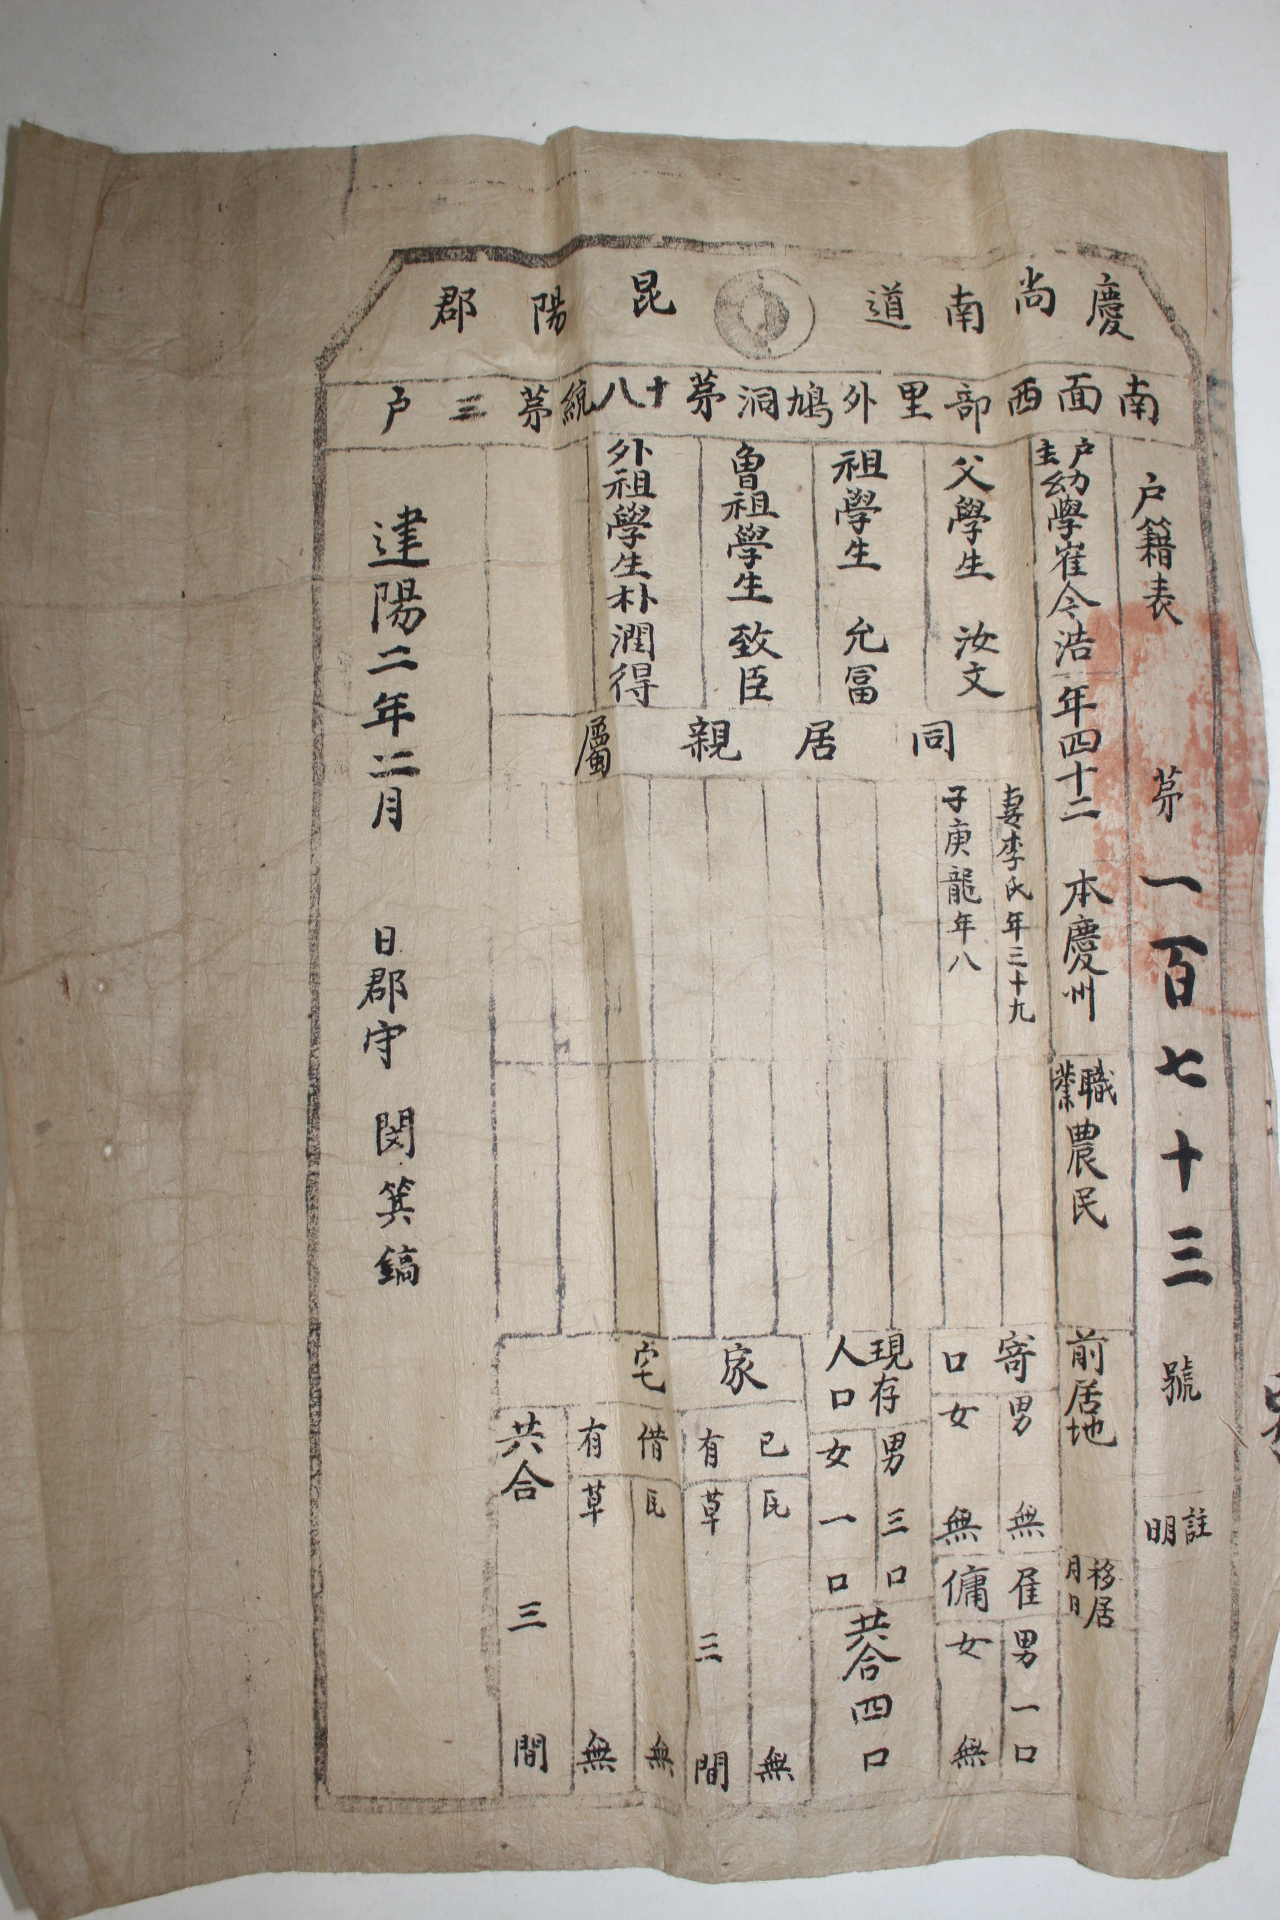 慶尚南道 昆陽郡
南面西部里外鳩洞苐十八統苐三戶
戶籍表 苐一百七十三號 註明
戶主幼學崔令浩 年四十二 本慶州 職業農民 前居地 移居月日
父學生 汝文
祖學生 允冨
曾祖學生 致臣
外祖學生朴潤得
同居親屬
妻李氏年三十九
子庚龍年八
寄口 男無 女無
雇傭 男一口 女無
現存人口 男三口 女一口 共合四口
家宅
己有 瓦無 草三間
借有 瓦無 草無
共合三間
建陽二年二月 日郡守 閔箕鎬